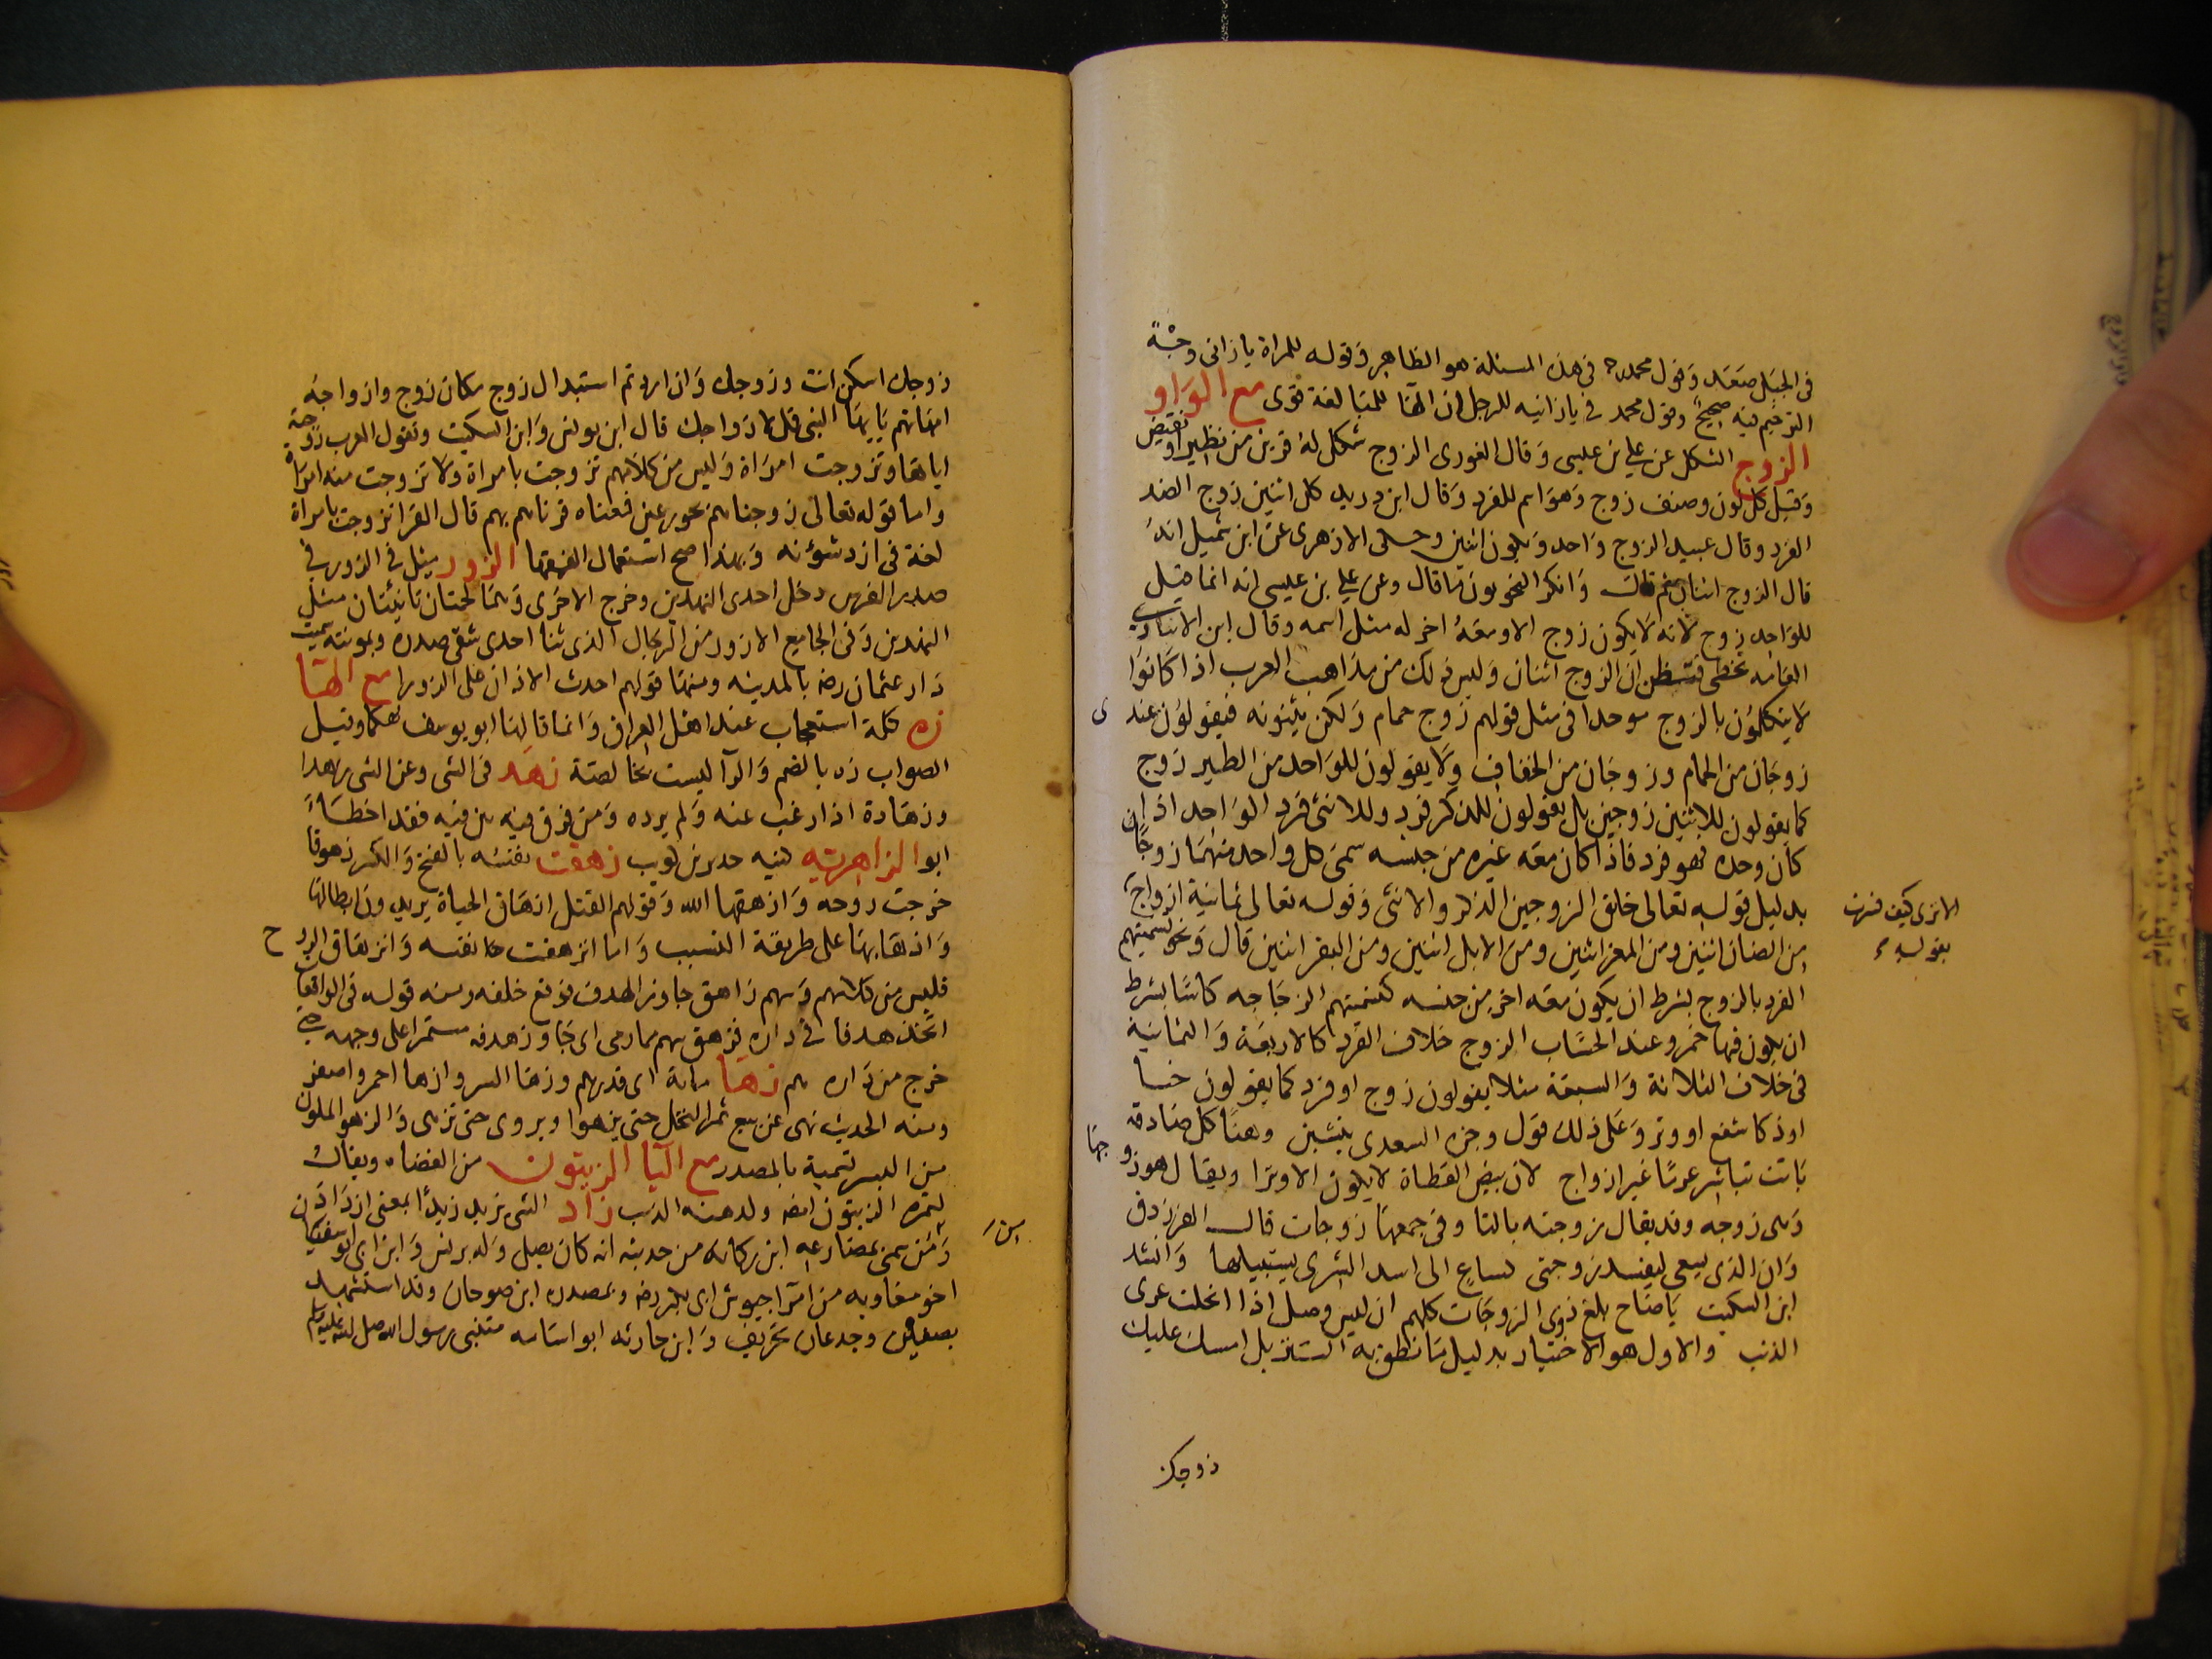 في الجبل صعد وقول محمد رح في هذه المسئلة هو الظاهر وقوله للمراة يا زاني وجهه
الترخيم فيه صحيح وقول محمد في يا زانيه للرجل ان الها للمبالغة قوى مع الواو
الزوج الشكل عن علي بن عيسى وقال الغورى الزوج شكل له قرين من نظير او نقيض
وقيل كل لون وصنف زوج وهو اسم للفرد وقال ابن دريد كل اثنين زوج الضد
الفرد وقال عبيد الزوج واحد ويكون اثنين وحكى الازهرى عن ابن شميل انه
قال الزوج اثنان ثم قال وانكر النحويون ما قال وعن علي بن عيسى انه انما قيل
للواحد زوج لانه لا يكون زوج الا ومعه اخر له مثل اسمه وقال ابن الانبارى
العامه تخطى فتظن ان الزوج اثنان وليس ذلك من مذاهب العرب اذا كانوا
لا يتكلمون بالزوج موحدا في مثل قولهم زوج حمام ولكن يثنونه فيقولون عندى
زوجان من الحمام وزوجان من الخفاف ولا يقولون للواحد من الطير زوج
كما يقولون للاثنين زوجين بل يقولون للذكر فرد وللانثى فرد الواحد اذا
كان وحده فهو فرد فاذا كان معه غيره من جنسه سمى كل واحد منهما زوجا
بدليل قوله تعالى خلق الزوجين الذكر والانثى وقوله تعالى ثمانية ازواج
الا ترى كيف فسرت
بقوله
من الضان اثنين ومن المعز اثنين ومن الابل اثنين ومن البقر اثنين قال ونحو تسميتهم
الفرد بالزوج بشرط ان يكون معه اخر من جنسه كتسميتهم الزجاجه كاسا بشرط
ان يكون فيها خمر وعند الحساب الزوج خلاف الفرد كالاربعة والثمانية
في خلاف الثلاثة والسبعة مثلا يقولون زوج او فرد كما يقولون خسا
او زكا شفع او وتر وعلى ذلك قول وجزه السعدى وهنا كل صادقة
باتت تباشر عرسا غير ازواج لان بيض القطاة لا يكون الا وترا ويقال هو زوجها
وهي زوجه وقد يقال زوجته بالتا وفي جمعها زوجات قال الفرزدق
وان الذى يسعى ليفسد زوجتى كساع الى اسد الشرى يستبيلها وانشد
ابن السكيت يا صاح بلغ ذوى الزوجات كلهم ان ليس وصل اذا انحلت عرى
الذنب والاول هو الاختيار بدليل ما نطق به التنزيل امسك عليك
زوجك
زوجك اسكن انت وزوجك وان اردتم استبدال زوج مكان زوج وازواجه
امهاتهم يايها النبى قل لازواجك قال ابن يونس وابن السكيت وتقول العرب زوجته
اياها وتزوجت امراة وليس من كلامهم تزوجت بامراة ولا زوجت منه امراة
واما قوله تعالى زوجناهم بحور عين فمعناه قرناهم بهم قال الفرا تزوجت بامراة
لغة في ازد شنؤنه وبهذا صح استعمال الفقها الزور ميل في الزور في
صدر الفرس دخل احدى الفهدتين وخرج الاخرى وهما لحمتان ناتئتان مثل
الفهدين وفي الجامع الازور من الرجال الذى نتا احدى شقى صدره وبمونثه سميت
دار عثمان رضه بالمدينه ومنها قولهم احدث الاذان على الزورا مع الها
زه كلمة استعجاب عند اهل العراق وانما قالها ابو يوسف تهكما وقيل
الصواب زه بالضم والزا ليست بخالصة زهد في الشى وعن الشى زهدا
وزهادة اذا رغب عنه ولم يرده ومن فرق فيه بين فيه فقد اخطا
ابو الزاهريه كنيه حدير بن كريب زهقت نفسه بالفتح والكسر زهوقا
خرجت روحه وازهقها الله وقولهم القتل ازهاق الحياة يريدون ابطالها
واذهابها على طريقة التسبب واما انزهقت نفسه وانزهاق الروح
فليس من كلامهم وسهم زاهق جاوز الهدف فوقع خلفه ومنه قوله في الواقعات
اتخذ هدفا في داره فزهق سهم مما رمى اى جاوز هدفه مستمرا على وجهه حتى
خرج من داره هم زها ماية اى قدرهم وزها البسر وازها احمر واصفر
ومنه الحديث نهى عن بيع ثمر النخل حتى يزهوا ويروى حتى تزهى والزهو الملون
من البسر تسمية بالمصدر مع اليا الزيتون من العضاه ويقال
لثمره الزيتون ايضا ولدهنه الزيت زاد الشى يزيد زيدا بمعنى ازداد
وممن سمى بمضارعه ابن ركانه من حديثه انه كان يصلى وله برنس وابن ابى سفيان
اخو معاويه من امرا جيوش ابى بكر رضه وبمصدره ابن صوحان وقد استشهد
بصفين وجدعان تحريف وابن حارثه ابو اسامه متبنى رسول الله صلى الله عليه وسلم